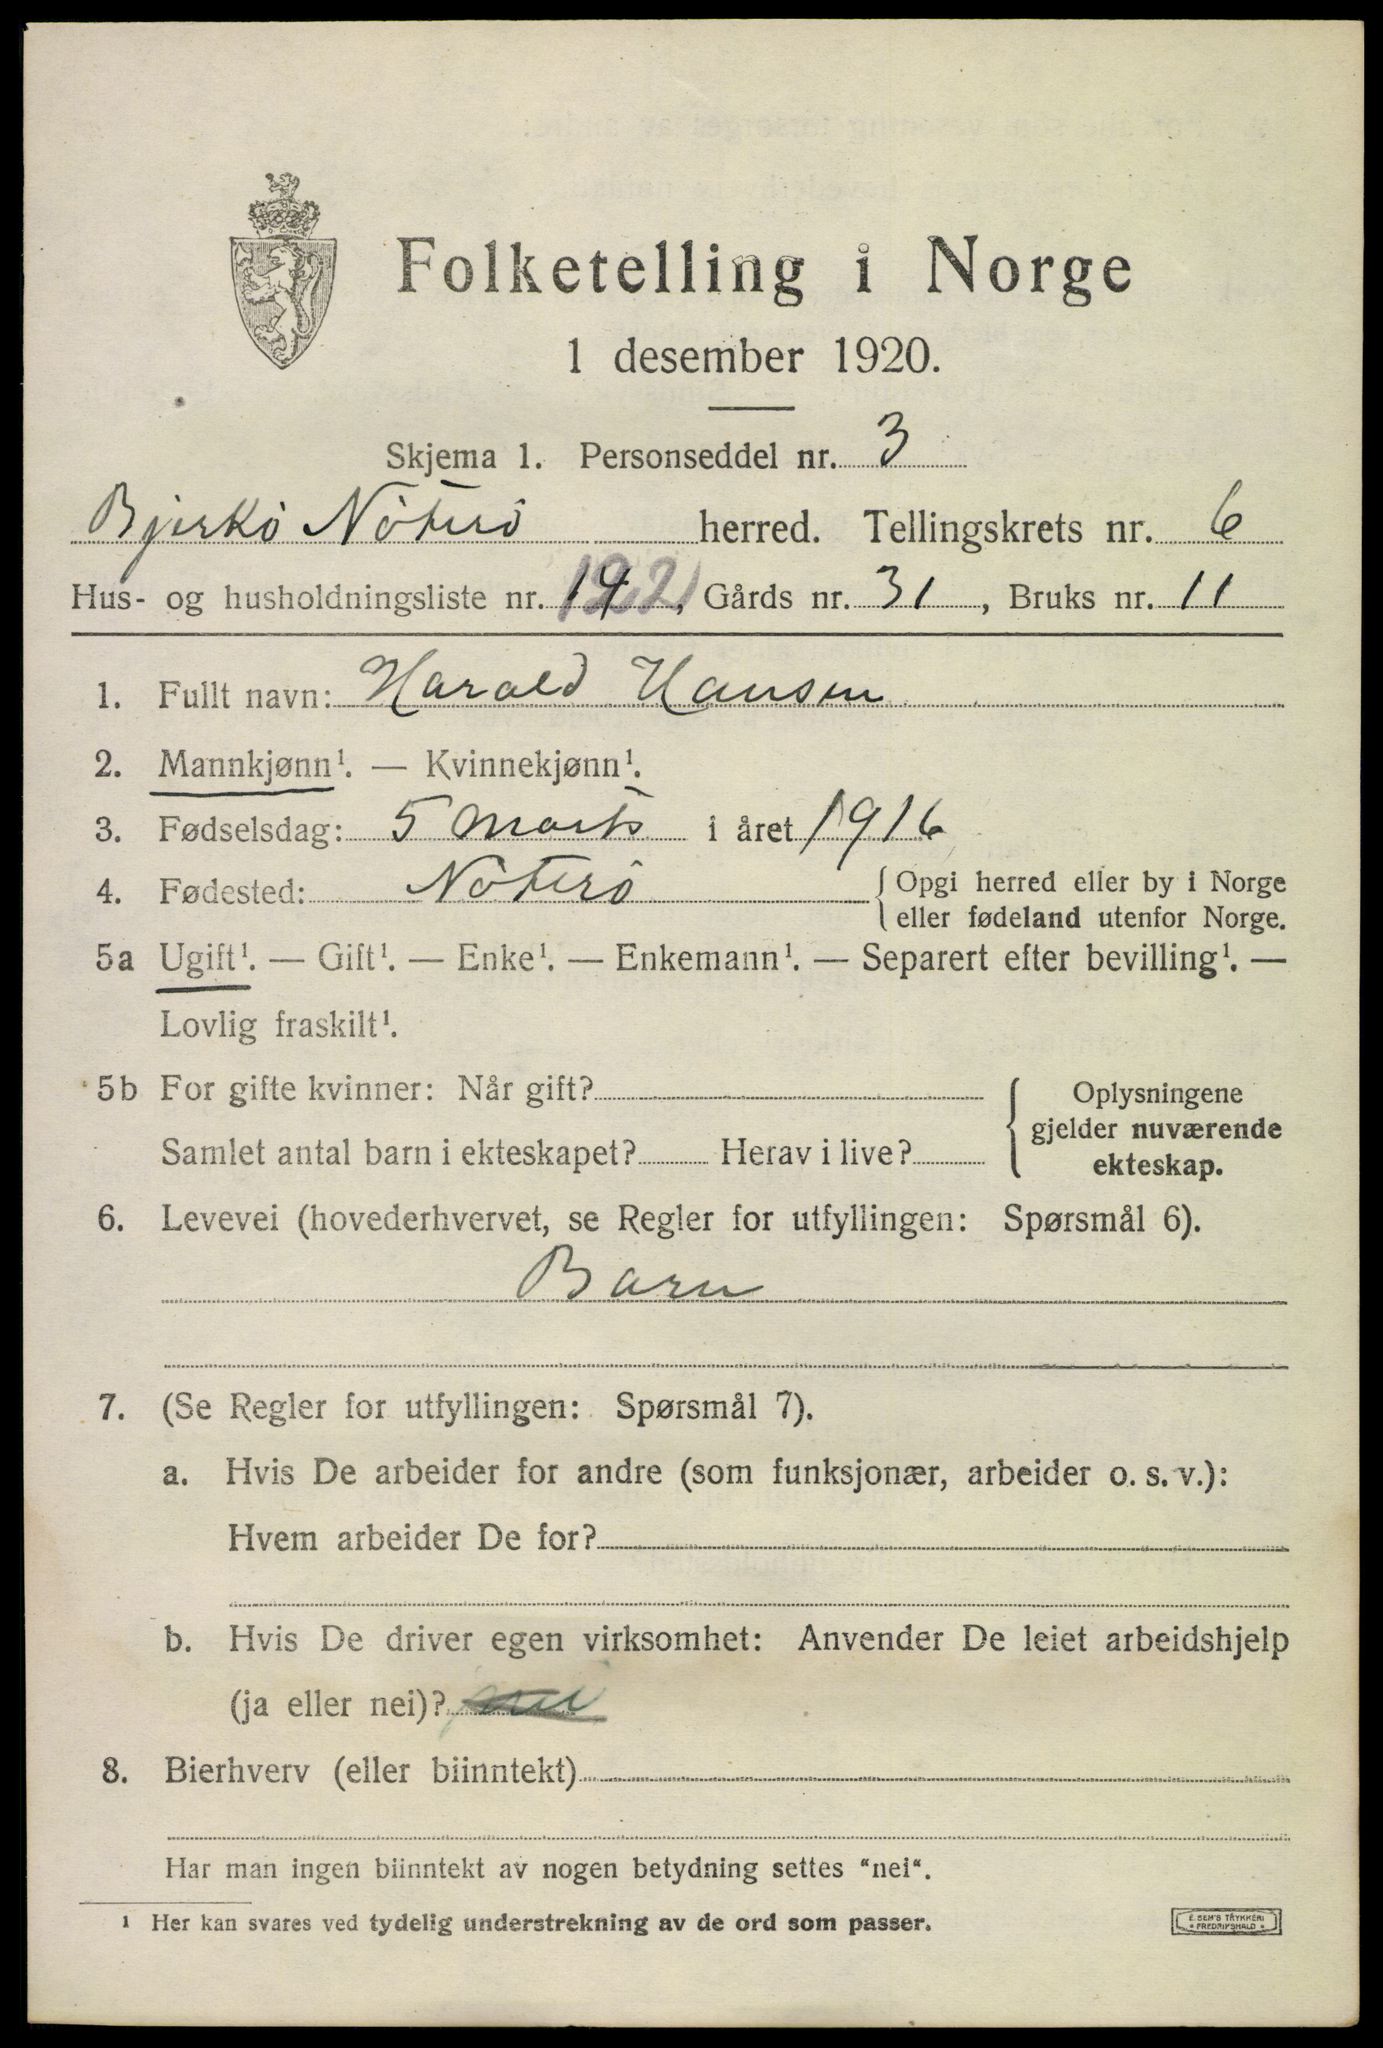 Folketelling i Norge
1 desember 1920.
Skjema 1. Personseddel nr. 3
Bjerkö Nöterö herred. Tellingskrets nr. 6
Hus- og husholdningsliste nr. 14 122, Gårds nr. 31, Bruks nr. 11
1. Fullt navn: Harald Hansen
2. Mannkjønn¹. — Kvinnekjønn¹.
3. Fødselsdag: 5 marts i året 1916
4. Fødested: Nöterö {Opgi herred eller by i Norge
eller fødeland utenfor Norge.
5a Ugift¹. — Gift¹. — Enke¹. — Enkemann¹. — Separert efter bevilling¹. —
Lovlig fraskilt¹.
5b For gifte kvinner: Når gift?
Samlet antal barn i ekteskapet? Herav i live?
{Oplysningene
gjelder nuværende
ekteskap.
6. Levevei (hovederhvervet, se Regler for utfyllingen: Spørsmål 6).
Barn
7. (Se Regler for utfyllingen: Spørsmål 7).
a. Hvis De arbeider for andre (som funksjonær, arbeider o. s. v.):
Hvem arbeider De for?
b. Hvis De driver egen virksomhet: Anvender De leiet arbeidshjelp
(ja eller nei)? nei
8. Bierhverv (eller biinntekt)
Har man ingen biinntekt av nogen betydning settes “nei“.
¹ Her kan svares ved tydelig understrekning av de ord som passer.
E. SEM'S TRYKKERI
• FREDRIKSHALD •